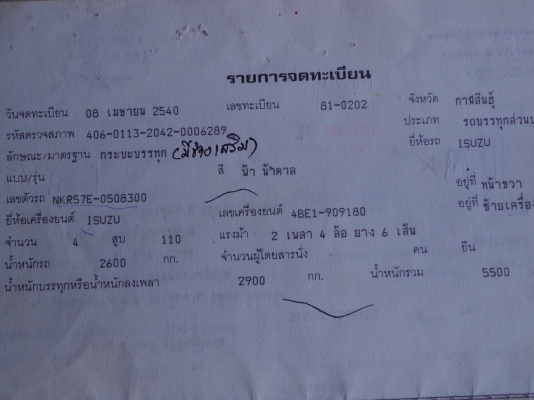 รายการจดทะเบียน
วันจดทะเบียน 08 เมษายน 2540 เลขทะเบียน 81-0202 จังหวัด กาฬสินธุ์
รหัสตรวจสภาพ 406-0113-2042-0006289 ประเภท รถบรรทุกส่วนบ
ลักษณะ/มาตรฐาน กระบะบรรทุก (มีช่วงเสริม) ยี่ห้อรถ ISUZU
แบบ/รุ่น สี ฟ้า น้ำตาล
เลขตัวรถ NKR57E-0508300 อยู่ที่ หน้าขวา
ยี่ห้อเครื่องยนต์ ISUZU เลขเครื่องยนต์ 4BE1-909180 อยู่ที่ ซ้ายเครื่อ
จำนวน 4 สูบ 110 แรงม้า 2 เพลา 4 ล้อ ยาง 6 เส้น
น้ำหนักรถ 2600 กก. จำนวนผู้โดยสารนั่ง คน ยืน
น้ำหนักบรรทุกหรือน้ำหนักลงเพลา 2900 กก. น้ำหนักรวม 5500